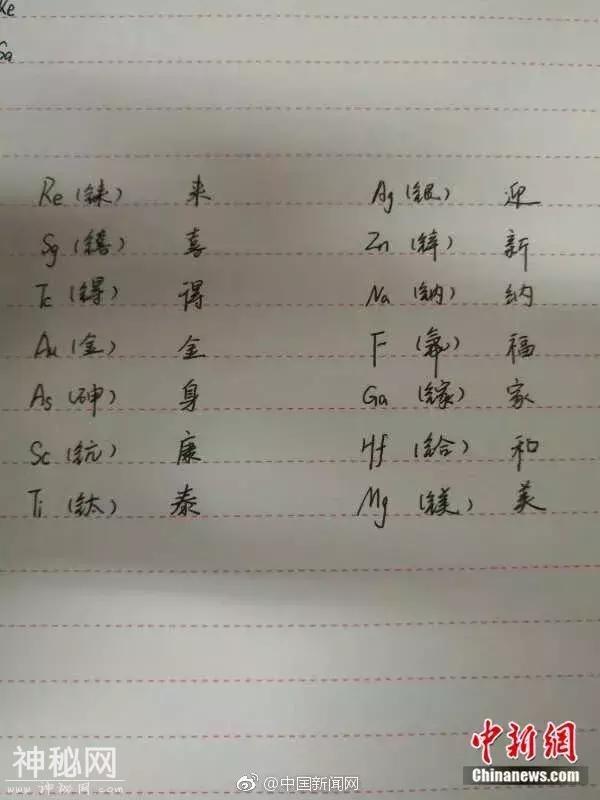 Ga
Re (铼) 来 Ag (银) 迎
Sg (𨭎) 喜 Zn (锌) 新
Tc (锝) 得 Na (钠) 纳
Au (金) 金 F (氟) 福
As (砷) 身 Ga (镓) 家
Sc (钪) 康 Hf (铪) 和
Ti (钛) 泰 Mg (镁) 美
神秘网
www.神秘网.com
@中国新闻网
中新网
Chinanews.com